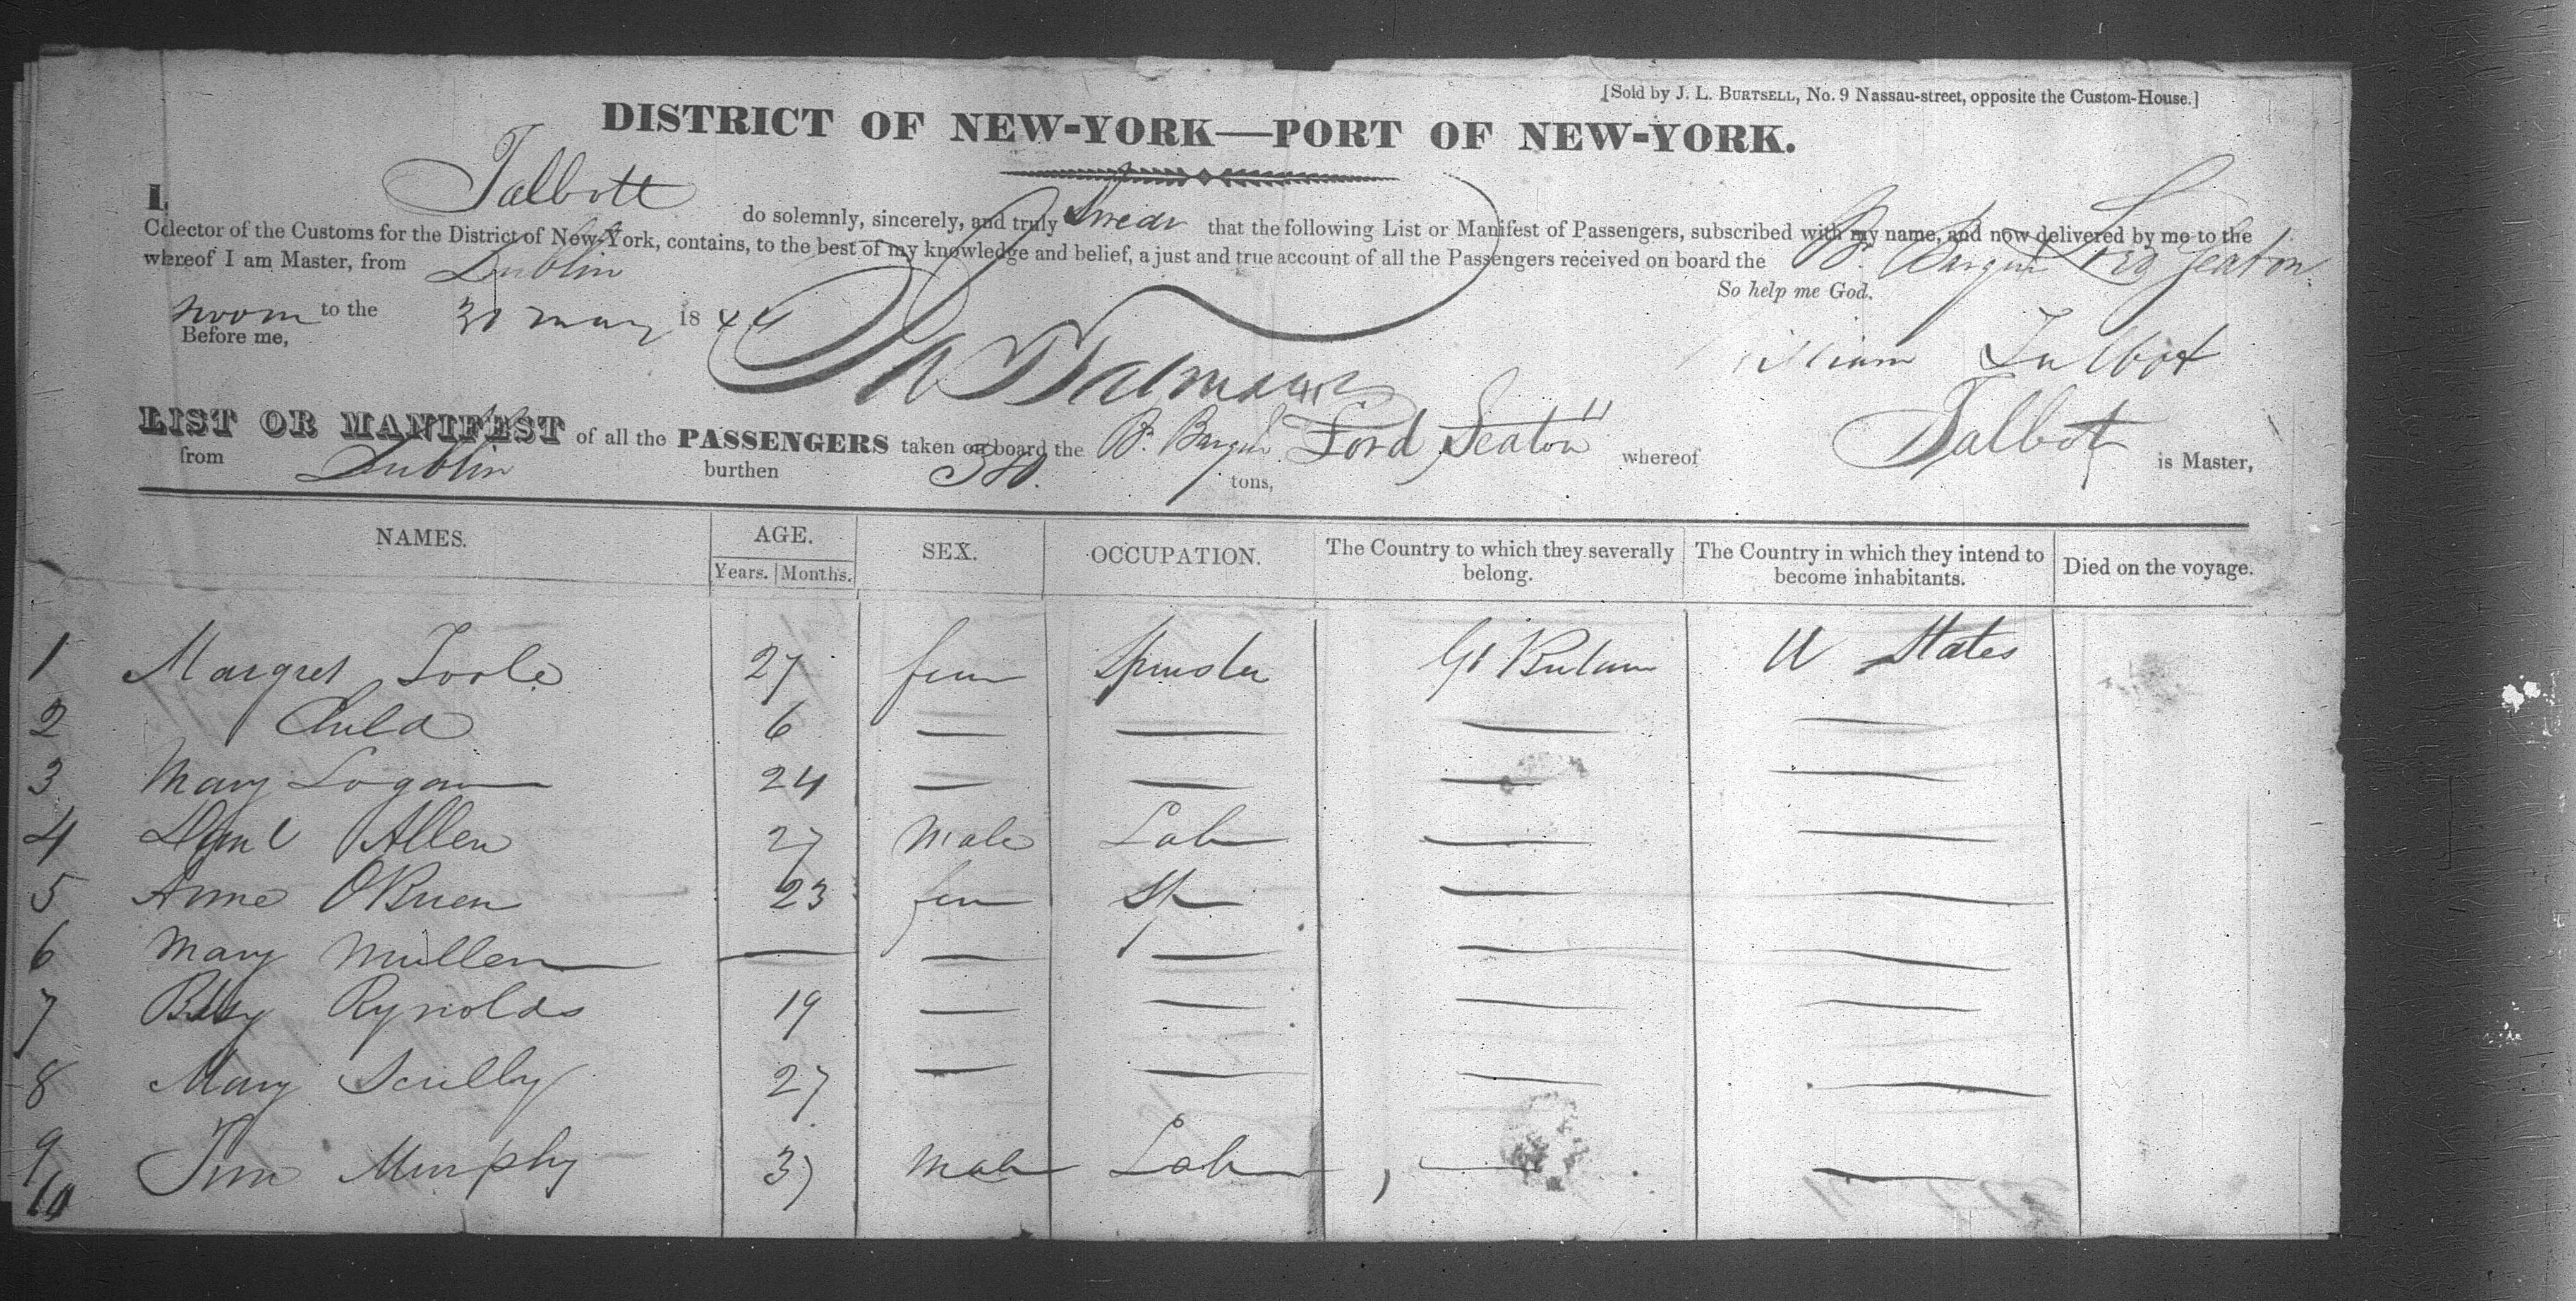 [Sold by J. L. BURTSELL, No. 9 Nassau-street, opposite the Custom-House.]
DISTRICT OF NEW-YORK—PORT OF NEW-YORK.
I, Talbott do solemnly, sincerely, and truly Swear that the following List or Manifest of Passengers, subscribed with my name, and now delivered by me to the
Collector of the Customs for the District of New-York, contains, to the best of my knowledge and belief, a just and true account of all the Passengers received on board the Br Barque Lord Seaton
whereof I am Master, from Dublin
So help me God.
Sworn to the 31 May 1844
William Talbot
Before me,
LIST OR MANIFEST of all the PASSENGERS taken on board the Br. Barque Lord Seaton" whereof Talbot is Master,
from Dublin burthen tons,
NAMES. AGE. SEX. OCCUPATION. The Country to which they severally belong. The Country in which they intend to become inhabitants. Died on the voyage.
Years. Months.
1 Margret Toole 27 fem Spinster Gt Britain U States
2 Child 6 — — — —
3 Mary Logan 24 — — — —
4 Danl Allen 27 Male Lab — —
5 Anne OBrien 23 fem Sp — —
6 Mary Mullen — — — — —
7 Betsy Rynolds 19 — — — —
8 Mary Scully 27 — — — —
9 Tim Murphy 37 Male Lab — —
10